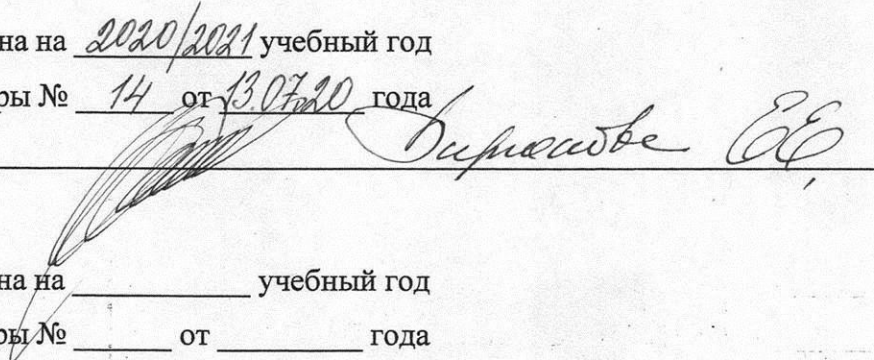 на на 2020/2021 учебный год
ры № 14 от 13.07.20 года
ЕЕ
на на __________ учебный год
ры № ______ от __________ года